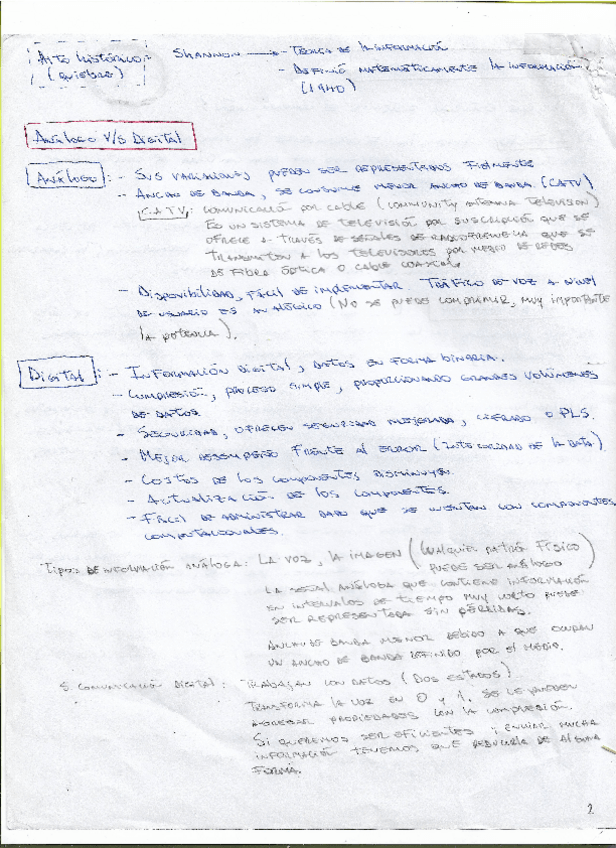 Hito histórico: Shannon → - Teoría de la información
(quiebre) - Definió matemáticamente la información.
(1940)
Análogo v/s Digital
Análogo: - Sus variables, pueden ser representados fielmente
- Ancho de banda, se consume menor ancho de banda. (CATV)
CATV: comunicación por cable (community antenna television)
Es un sistema de televisión por suscripción que se
ofrece a través de señales de radiofrecuencia que se
transmiten a los televisores por medio de redes
de fibra óptica o cable coaxial.
- Disponibilidad, fácil de implementar. Tráfico de voz a nivel
de usuario es analógico (No se puede comprimir, muy importante
la potencia).
Digital: - Información digital, datos en forma binaria.
- Compresión, proceso simple, proporcionando grandes volúmenes
de datos.
- Seguridad, ofrecen seguridad mejorada, cifrado o PLS.
- Mejor desempeño frente al error (integridad de la data).
- Costos de los componentes disminuyen.
- Actualización de los componentes.
- Fácil de administrar dado que se cuentan con componentes
computacionales.
Tipos de información análoga: La voz, la imagen (cualquier patrón físico
puede ser análogo)
La señal análoga que contiene información
en intervalos de tiempo muy corto puede
ser representada sin pérdidas.
Ancho de banda menor debido a que ocupan
un ancho de banda definido por el medio.
S. comunicación digital: Trabajan con datos (dos estados)
Transforma la voz en 0 y 1. Se le pueden
agregar propiedades con la compresión.
Si queremos ser eficientes y enviar mucha
información tenemos que reducirla de alguna
forma.
2